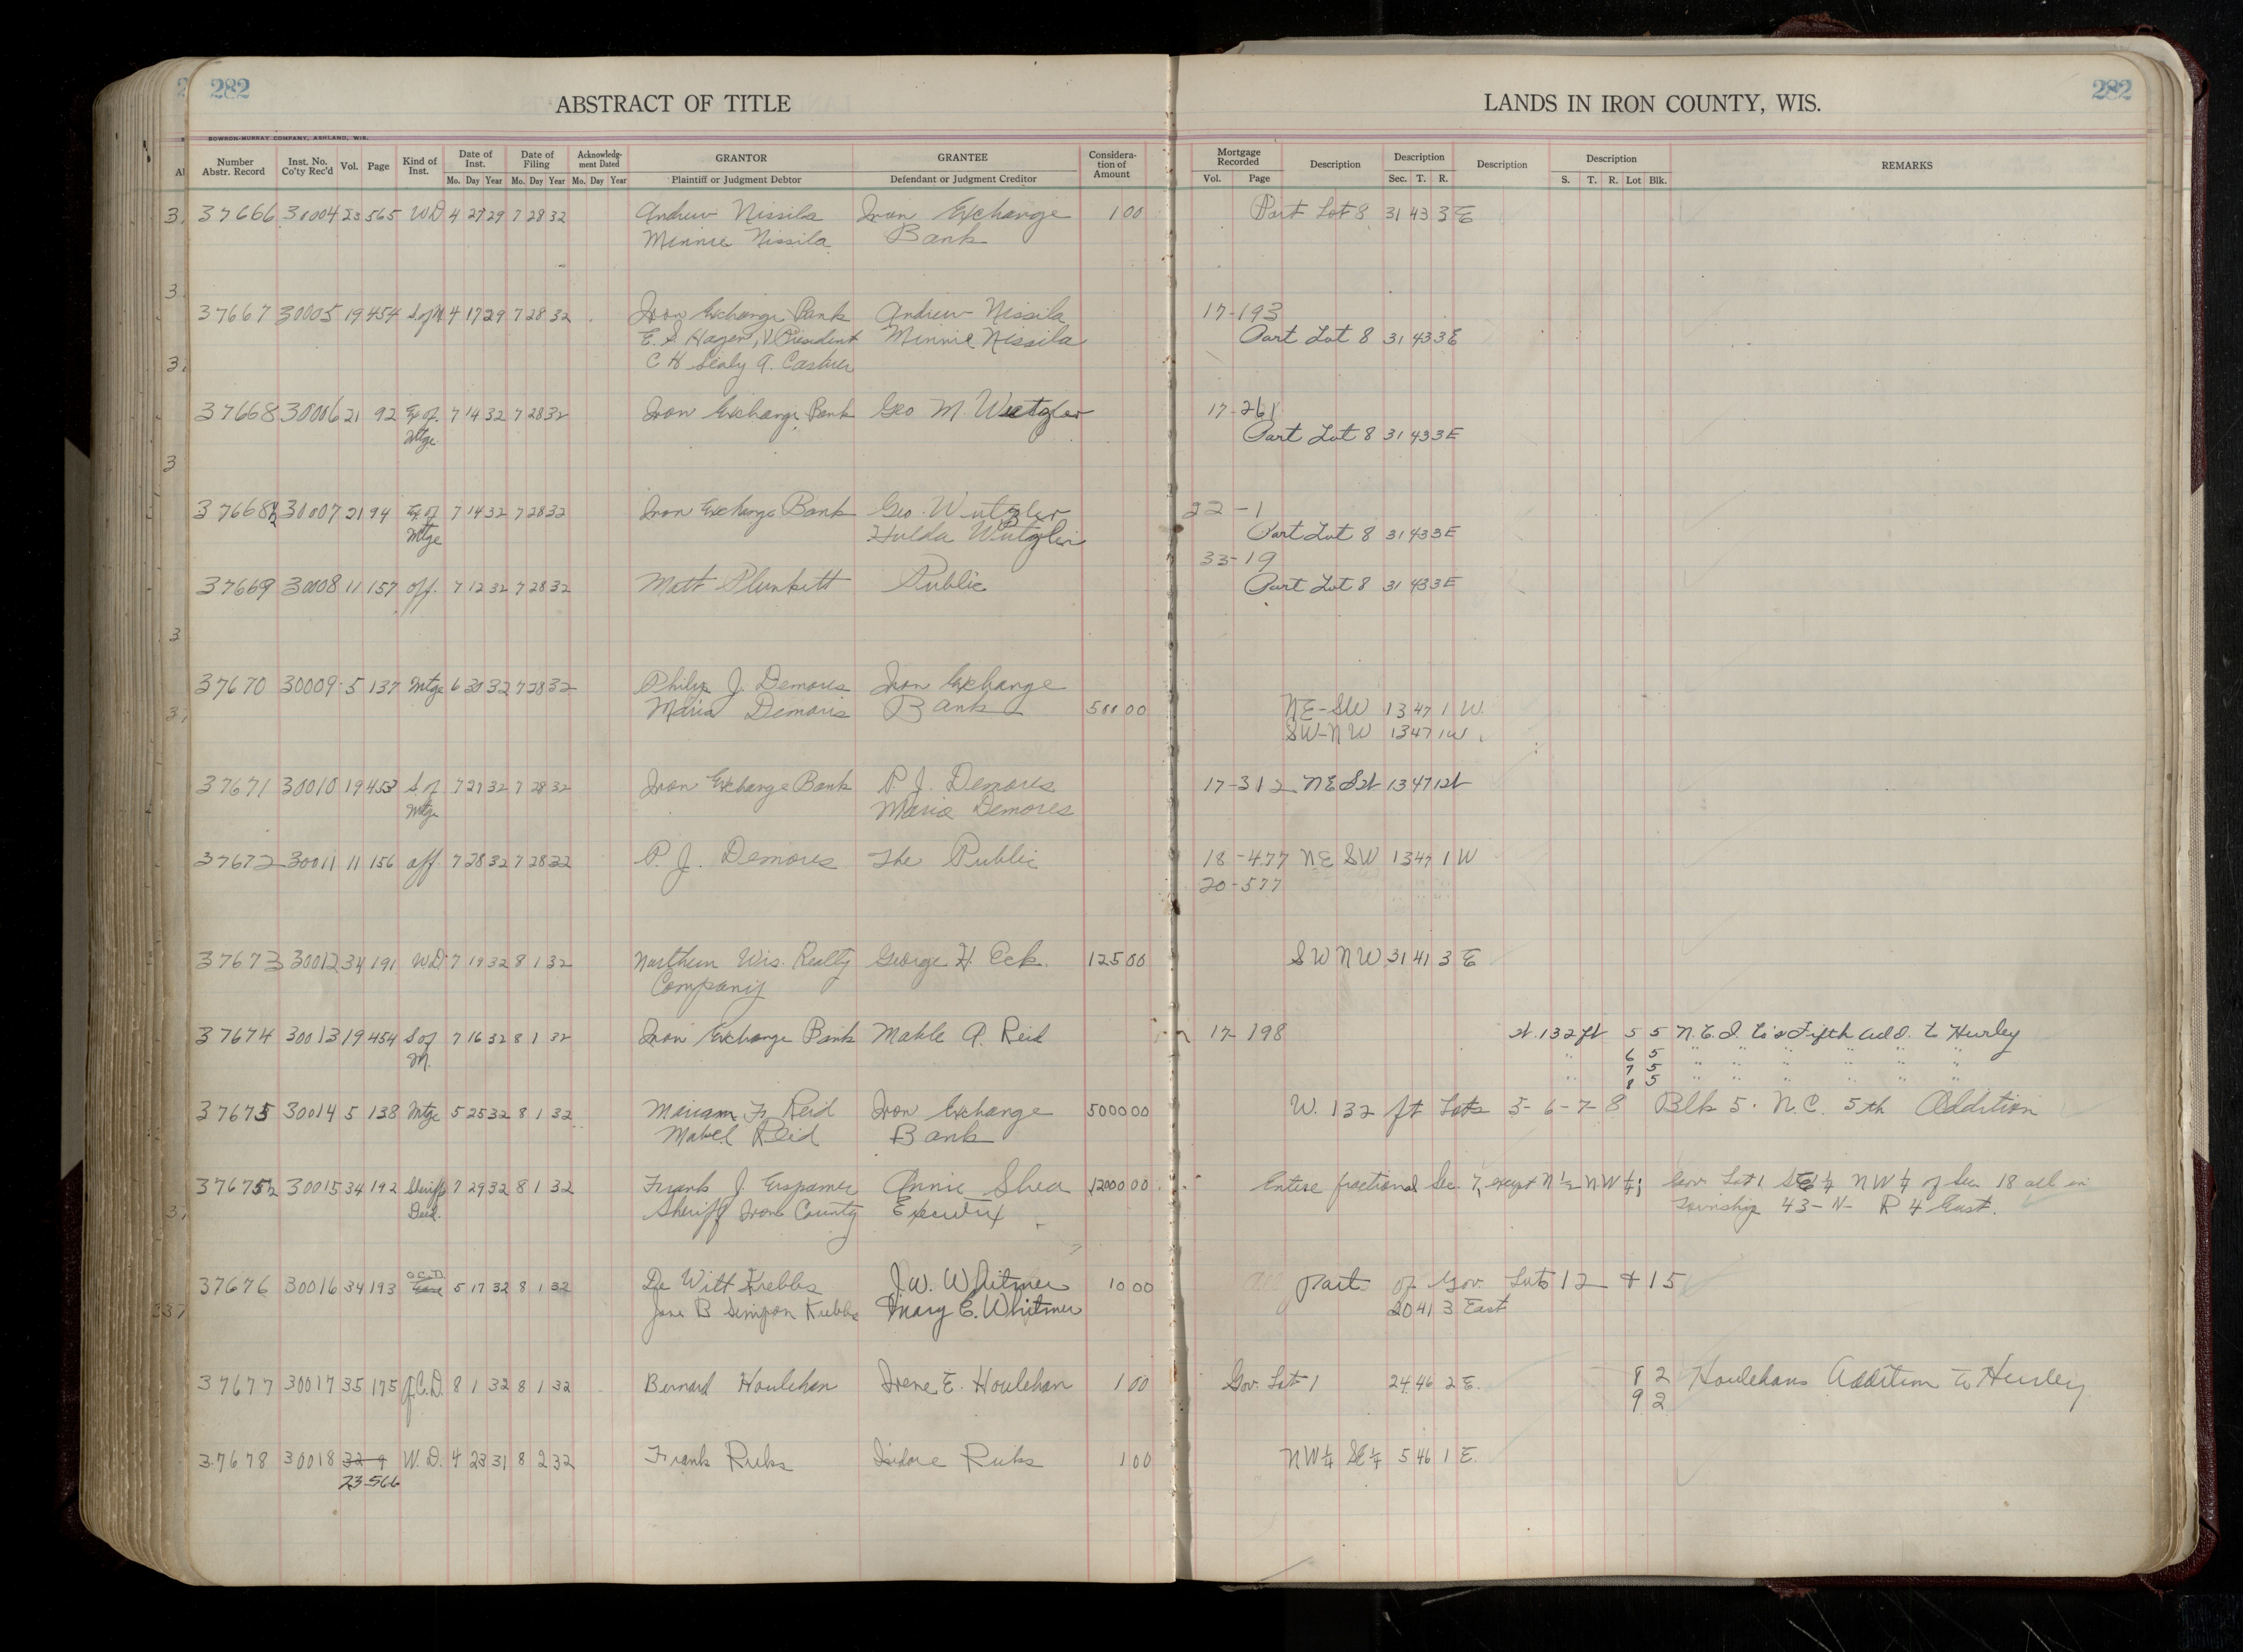 282
ABSTRACT OF TITLE
LANDS IN IRON COUNTY, WIS.
282
BOWRON-MURRAY COMPANY, ASHLAND, WIS.
Number Abstr. Record Inst. No. Co'ty Rec'd Vol. Page Kind of Inst. Date of Inst. Mo. Day Year Date of Filing Mo. Day Year Acknowledg- ment Dated Mo. Day Year GRANTOR Plaintiff or Judgment Debtor GRANTEE Defendant or Judgment Creditor Considera- tion of Amount Mortgage Recorded Vol. Page Description Description Sec. T. R. Description Description S. T. R. Lot Blk. REMARKS
37666 30004 23 565 W.D 4 27 29 7 28 32 Andrew Nissila Iron Exchange 1 00 Part Lot 8 31 43 3 E
Minnie Nissila Bank
37667 30005 19 454 S of M 4 17 29 7 28 32 Iron Exchange Bank Andrew Nissila 17-193
E. S Hagen, V President Minnie Nissila Part Lot 8 31 43 3 E
C H Sealy A. Cashier
37668 30006 21 92 Ex of. 7 14 32 7 28 32 Iron Exchange Bank Geo M. Wutzler 17-261
Mtge Part Lot 8 31 43 3 E
37668½ 30007 21 94 Ex of 7 14 32 7 28 32 Iron Exchange Bank Geo. Wutzler 22-1
Mtge Hulda Wutzler Part Lot 8 31 43 3 E
33-19
37669 30008 11 157 off. 7 12 32 7 28 32 Matt Plunkett Public Part Lot 8 31 43 3 E
37670 30009 5 137 Mtge 6 30 32 7 28 32 Philip J. Demores Iron Exchange
Maria Demoris Bank 500 00 NE-SW 13 47 1 W.
SW-NW 13 47 1 W
37671 30010 19 453 S. of 7 27 32 7 28 32 Iron Exchange Bank P. J. Demores 17-312 NE SW 13 47 1W
Mtge Maria Demores
37672 30011 11 156 aff 7 28 32 7 28 32 P. J. Demores The Public 18-477 NE SW 13 47 1 W
20-577
37673 30012 34 191 W.D. 7 19 32 8 1 32 Northern Wis. Realty George H. Eck. 125 00 SW NW 31 41 3 E
Company
37674 30013 19 454 S of 7 16 32 8 1 32 Iron Exchange Bank Mable A. Reid 17-198 W. 132 ft 5 5 N.C.I. Co's Fifth Add. to Hurley
M. " 6 5 " " " " " "
7 5
" 8 5 " " " " " "
37675 30014 5 138 Mtge 5 25 32 8 1 32 Mariam F. Reid Iron Exchange 5000 00 W. 132 ft Lots 5-6-7-8 Blk 5. N.C. 5th Addition
Mabel Reid Bank
37675½ 30015 34 192 Sheriff 7 29 32 8 1 32 Frank J. Erspamer Annie Shea 12000 00 Entire fractional Sec 7, except N½ NW¼; Gov. Lot 1 SE¼ NW¼ of Sec 18 all in
Deed. Sheriff Iron County Executrix Township 43-N- R 4 East.
O.C.D.
37676 30016 34 193 5 17 32 8 1 32 De Witt Krebbs J. W. Whitmer 10 00 Part of Gov Lots 12 & 15
Jane B Simpson Krebbs Mary E. Whitmer 20 41 3 East
37677 30017 35 175 Q.C.D. 8 1 32 8 1 32 Bernard Houlehan Irene E. Houlehan 1 00 Gov. Lot 1 24 46 2 E. 8 2 Houlehans Addition to Hurley
9 2
37678 30018 32 9 W.D. 4 23 31 8 2 32 Frank Ruks Isidore Ruks 1 00 NW¼ SE¼ 5 46 1 E.
23-566